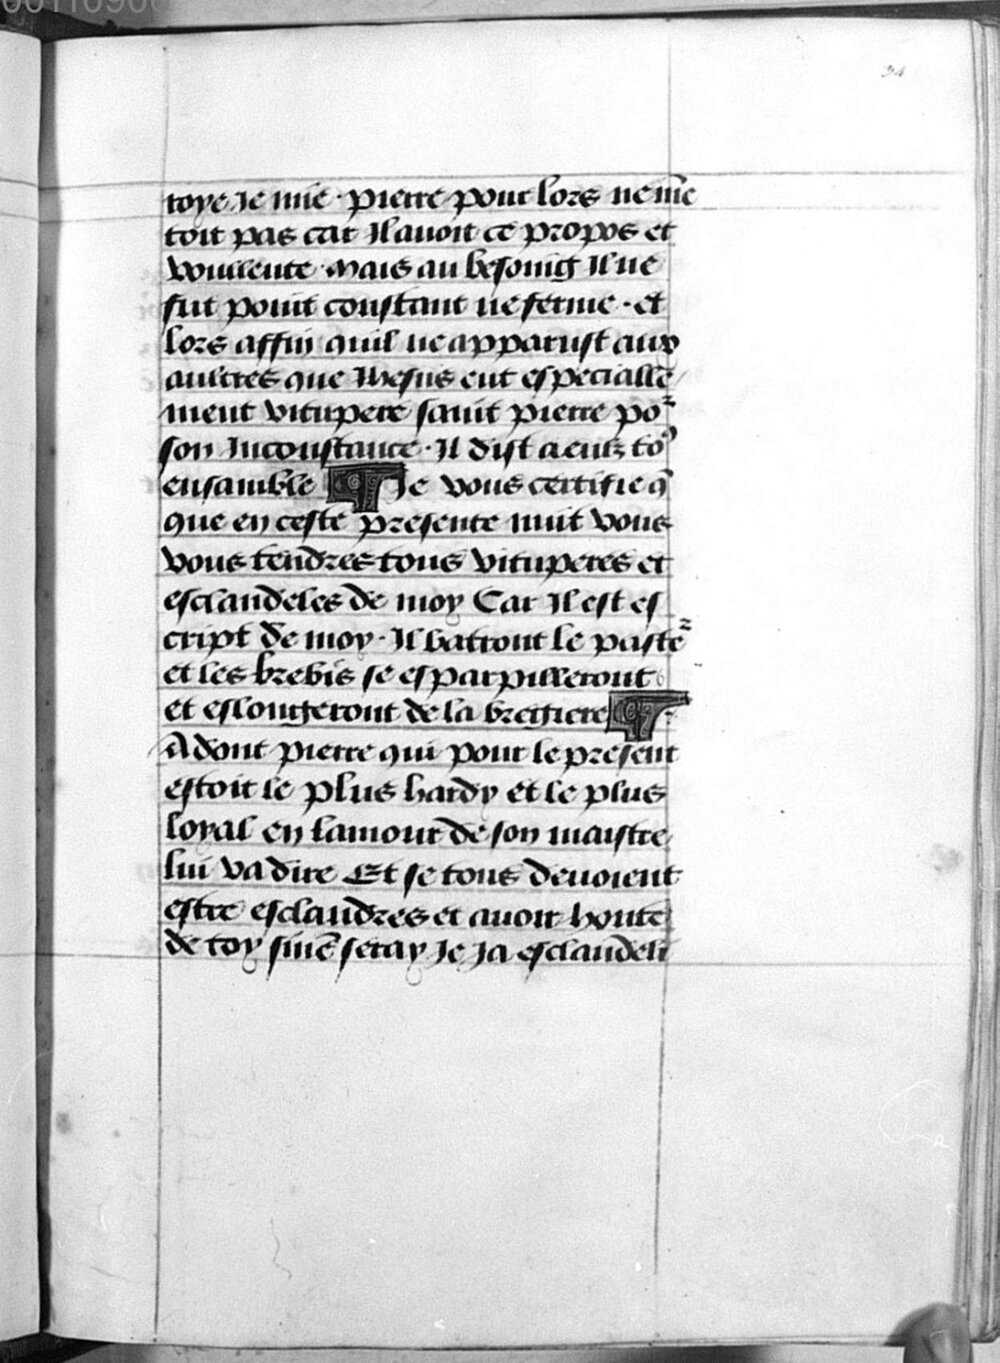 34
toye Je mie · pierre pour lors ne mē
toit pas car Il auoit ce propos et
voullente · Mais au besoing Il ne
fut point constant ne ferme · et
lors affin quil ne apparust aux
aultres que Ihesus eut especialle
ment vitupere saint pierre po²
son Inconstance · Il dist a eulz to⁹
ensamble ¶ Je vous certifie q̄
que en ceste presente nuit vous
vous tendres tous vituperes et
esclandeles de moy Car Il est es
cript de moy · Il batront le paste²
et les brebis se esparpilleront
et eslongeront de la bregiere ¶
Adont pierre qui pour le present
estoit le plus hardy et le plus
loyal en lamour de son maistre
lui va dire Et se tous deuoient
estre esclandres et auoir honte
de toy si ne seray Je Ja esclandeli